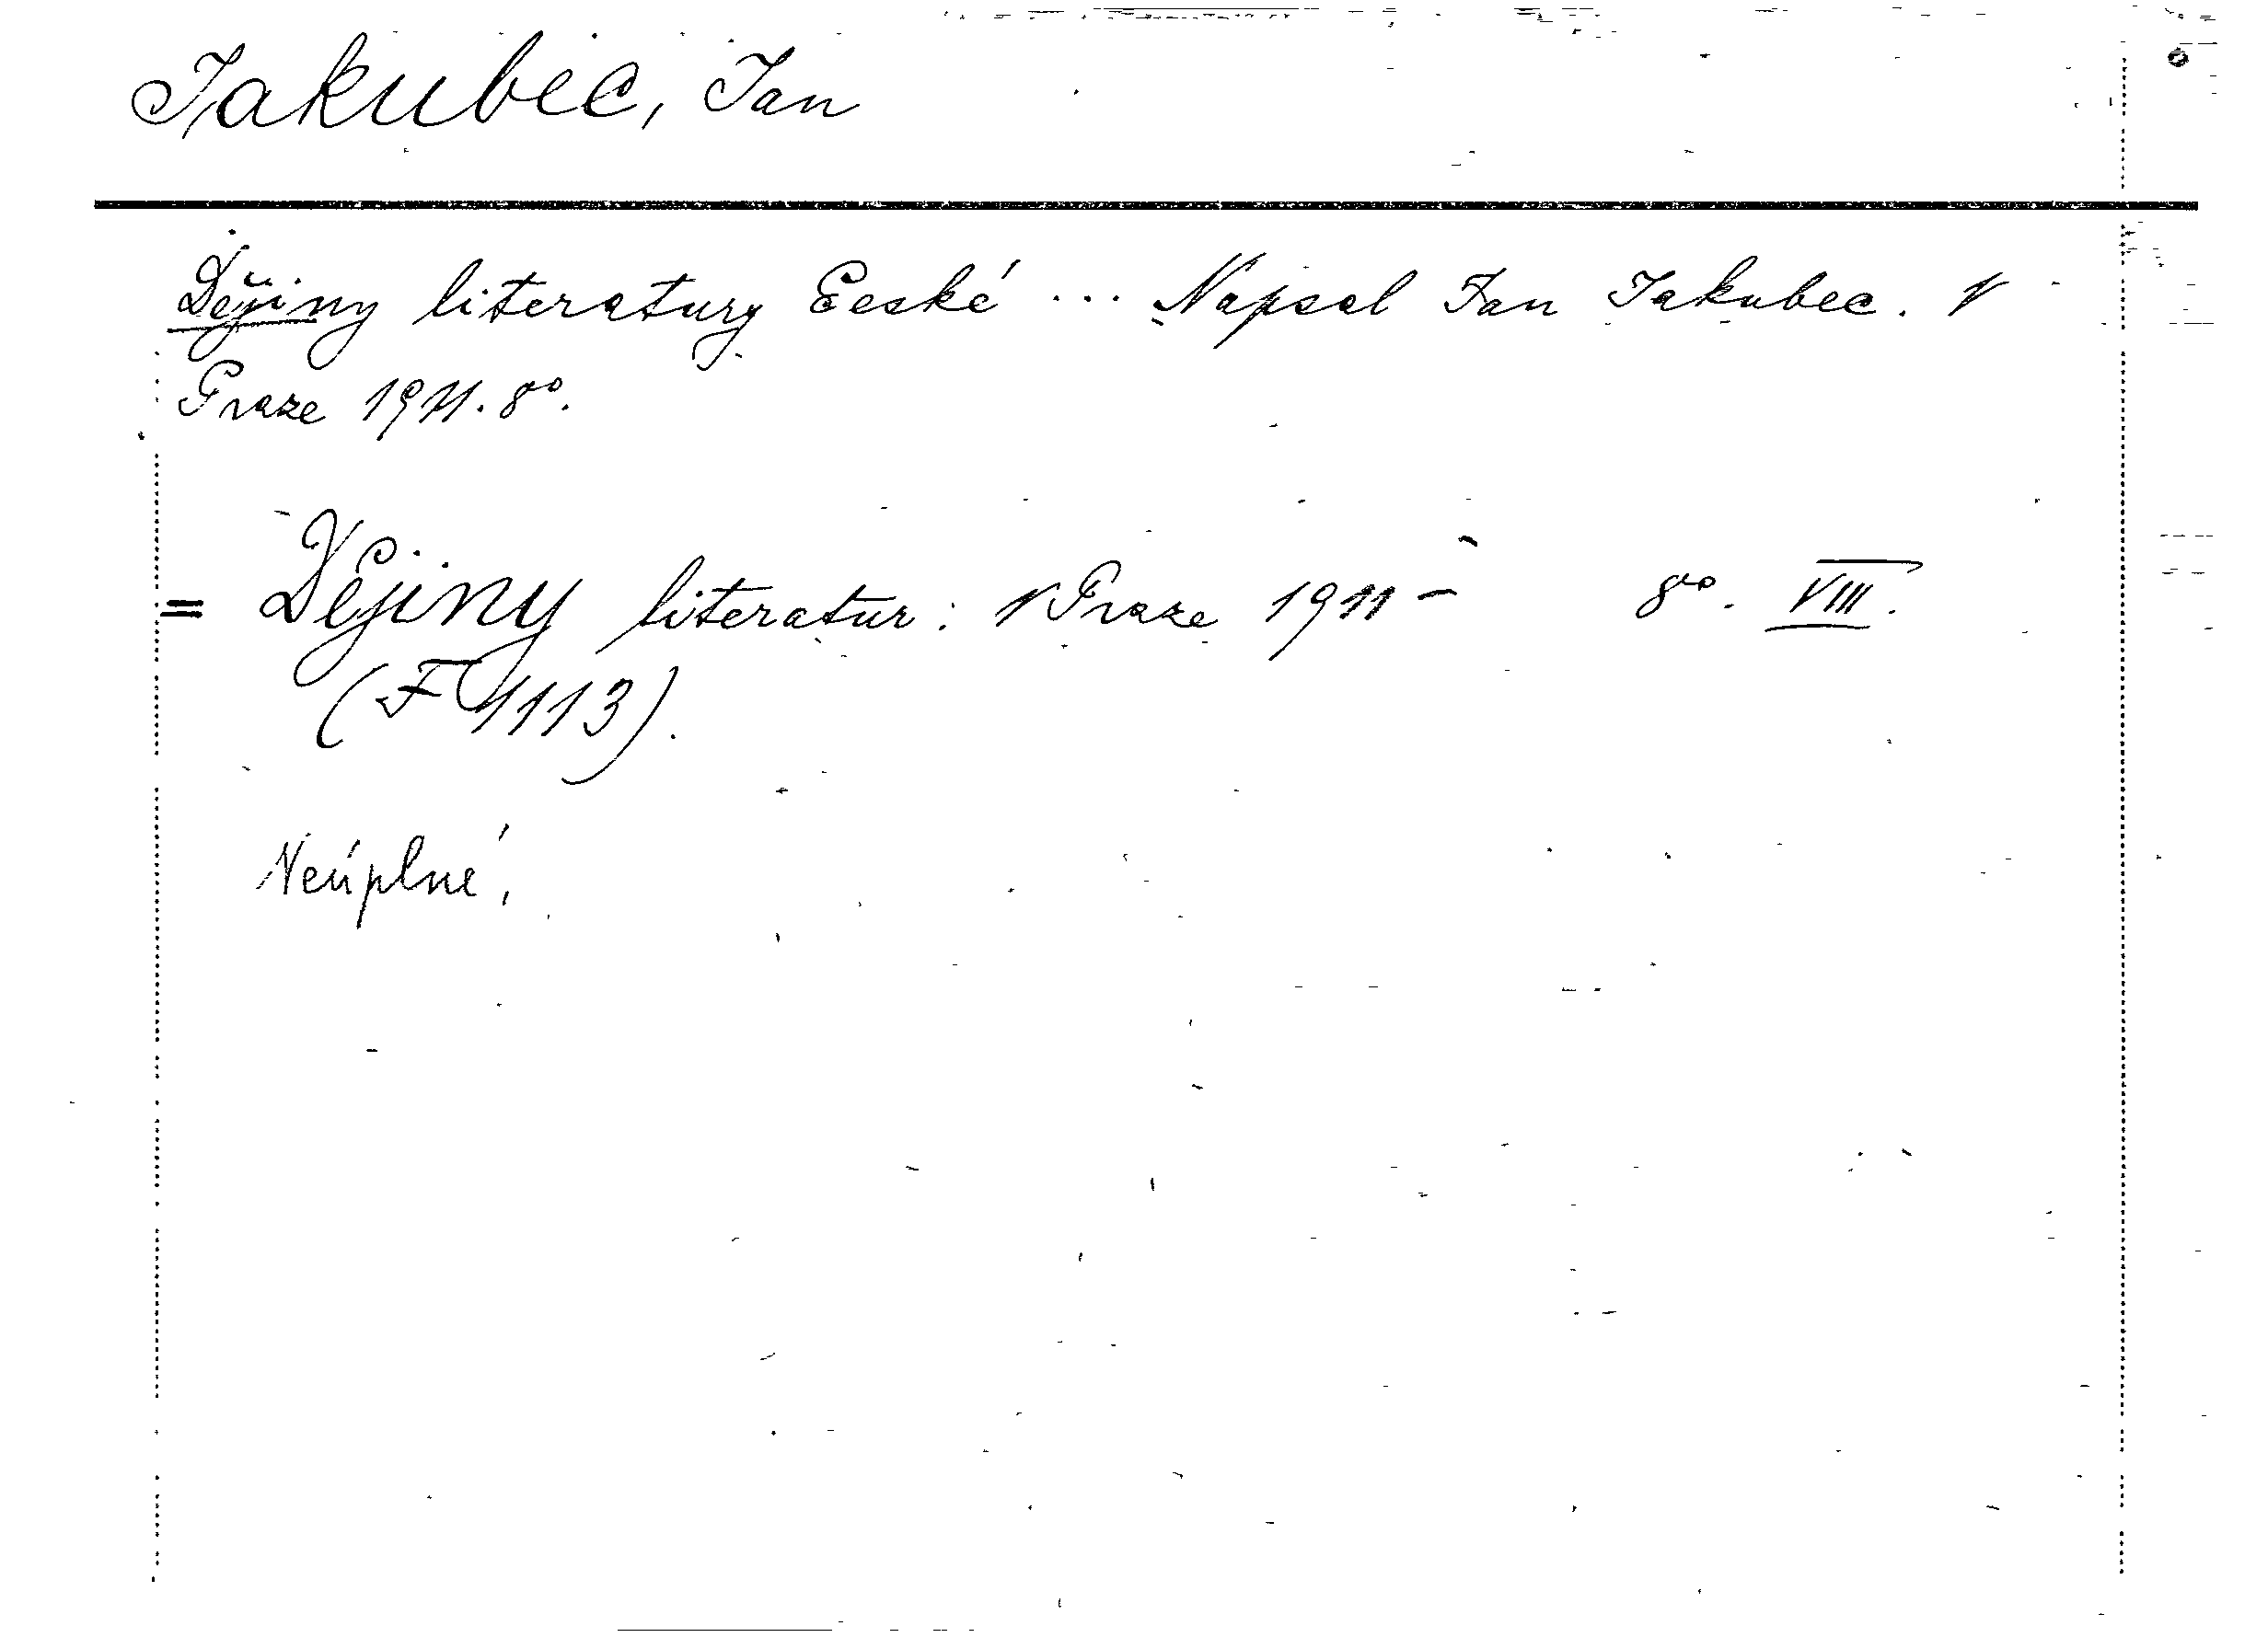 Jakubec, Jan
Dějiny literatury české ... Napsal Jan Jakubec. V
Praze 1911. 8°.
= Dějiny literatur: V Praze 1911- 8°. VIII.
(F 1113).
Neúplné.